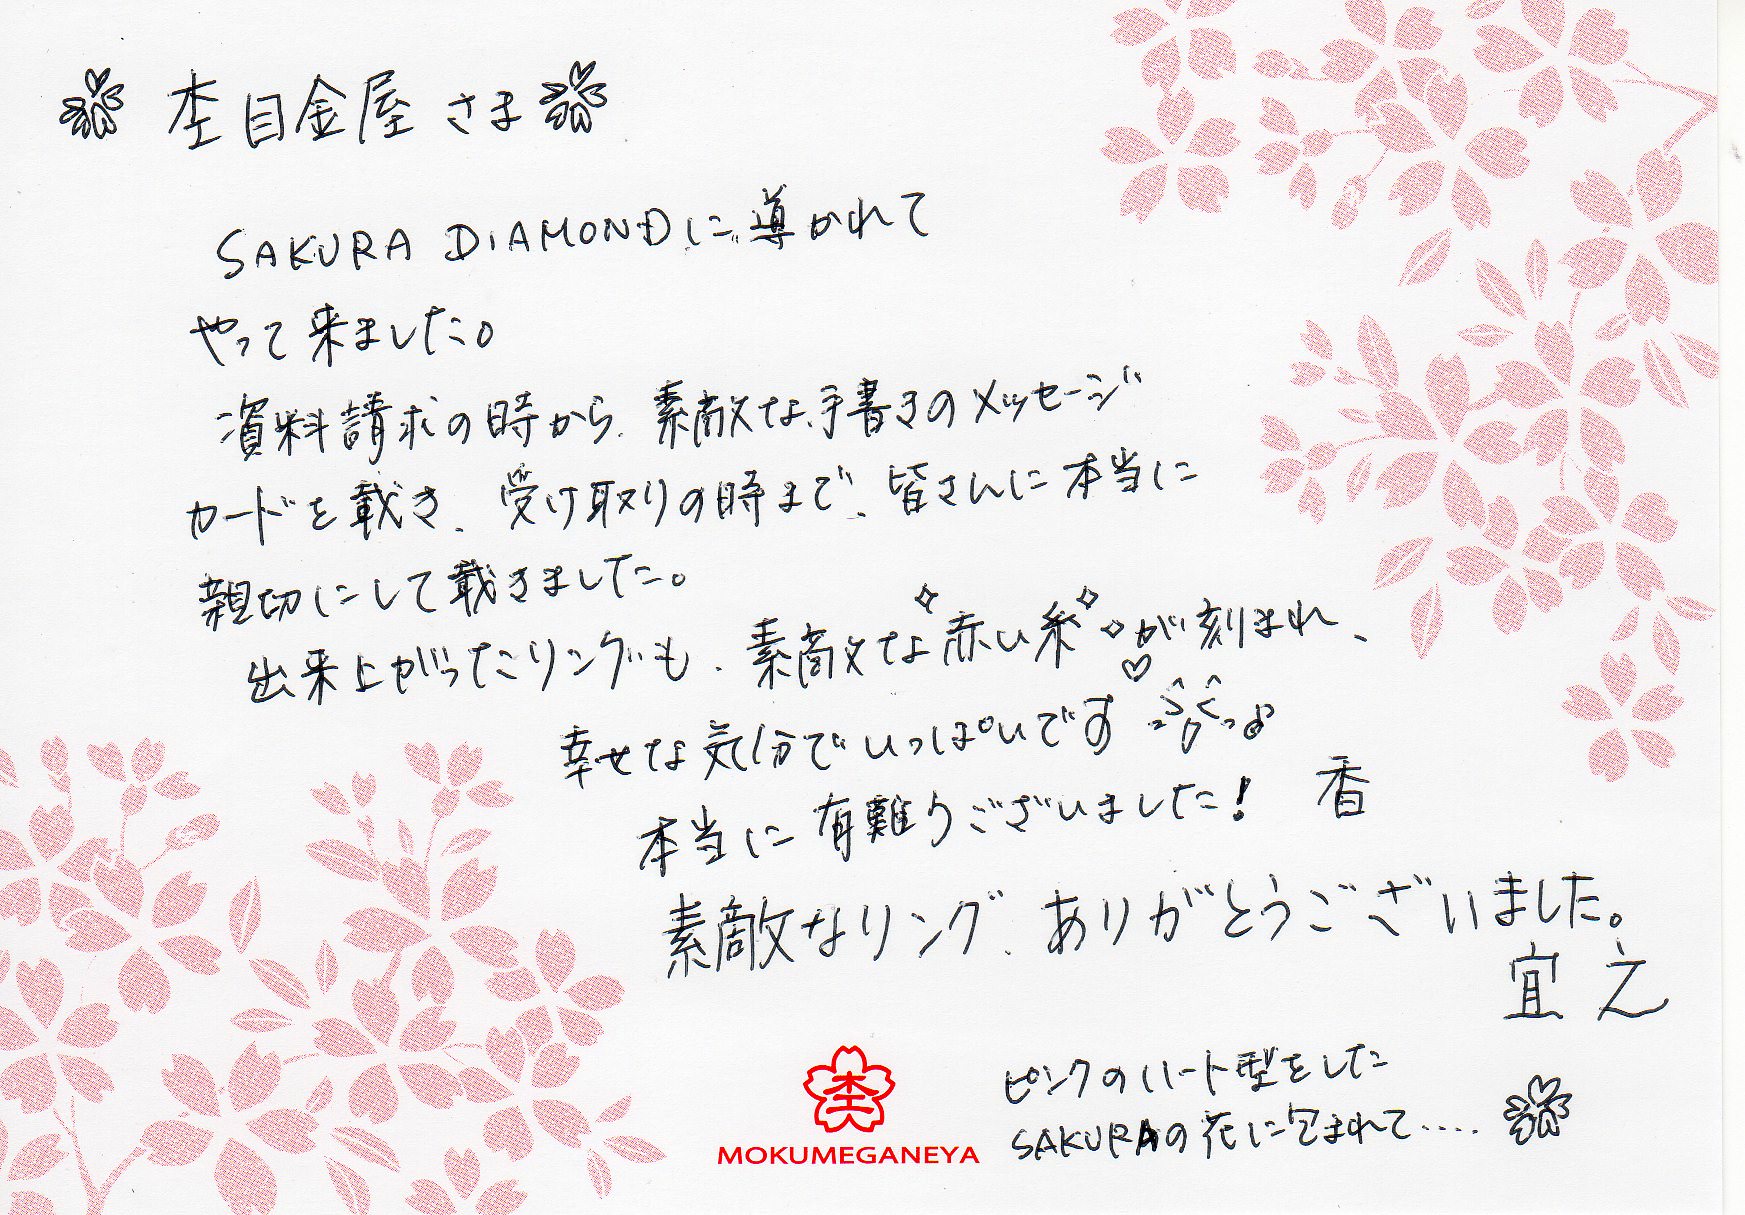 杢目金屋さま
SAKURA DIAMONDに導かれて
やって来ました。
資料請求の時から、素敵な手書きのメッセージ
カードを載き、受け取りの時まで、皆さんに本当に
親切にして載きました。
出来上がったリングも、素敵な赤い糸が刻まれ、
幸せな気分でいっぱいです
本当に有難うございました! 香
素敵なリング、ありがとうございました。
宜之
ピンクのハート型をした
SAKURAの花に包まれて‥‥
杢
MOKUMEGANEYA